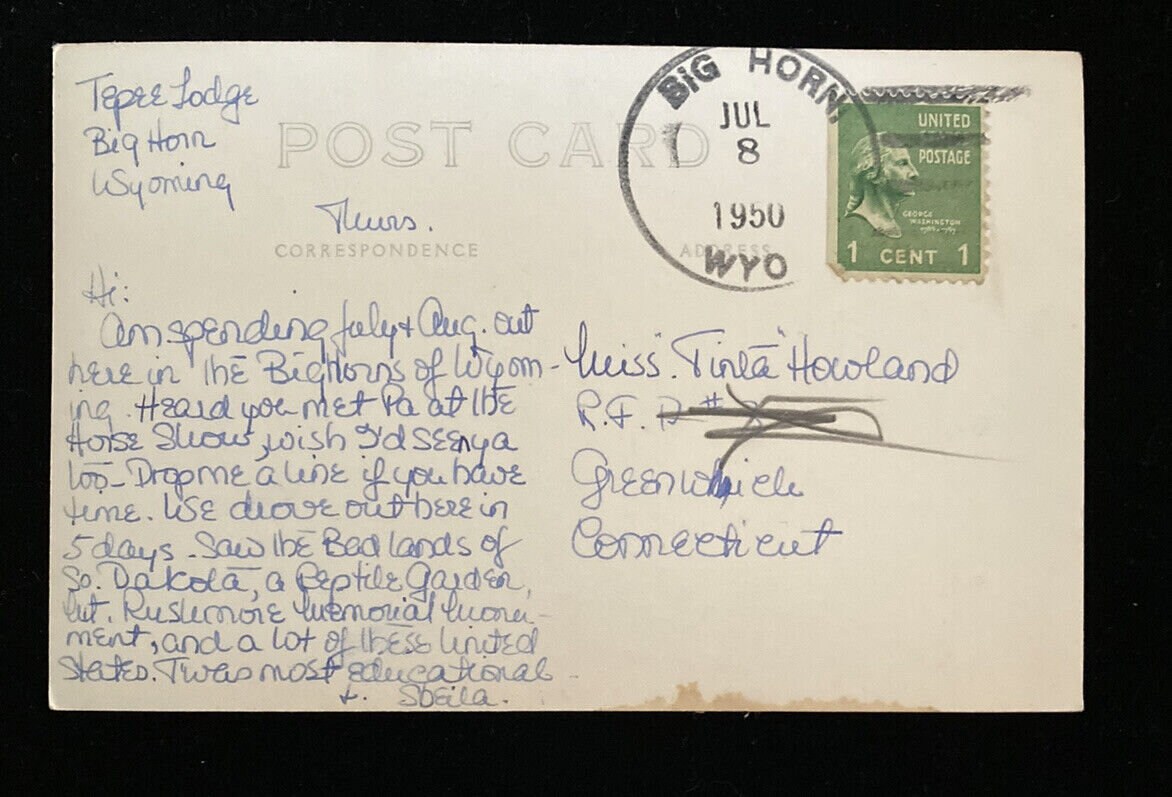 Tepee Lodge
Big Horn
Wyoming
Thurs.
POST CARD
CORRESPONDENCE
ADDRESS
BIG HORN,
JUL
8
1950
WYO
UNITED
STATES
POSTAGE
GEORGE
WASHINGTON
1 CENT 1
Hi:
Am spending July & Aug. out
here in the Bighorns of Wyom-
ing. Heard you met Pa at the
Horse Show, wish I'd seen ya
too - Drop me a line if you have
time. We drove out here in
5 days. Saw the Badlands of
So. Dakota, a Reptile Garden,
Mt. Rushmore Memorial Monu-
ment, and a lot of these United
States. Twas most educational
Sheila.
Miss "Tinta" Howland
R.F.D #
Greenwhich
Connecticut